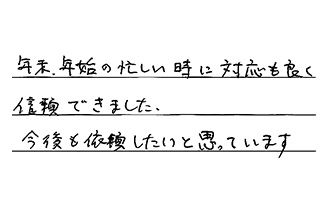 年末、年始の忙しい時に対応も良く
信頼できました、
今後も依頼したいと思っています